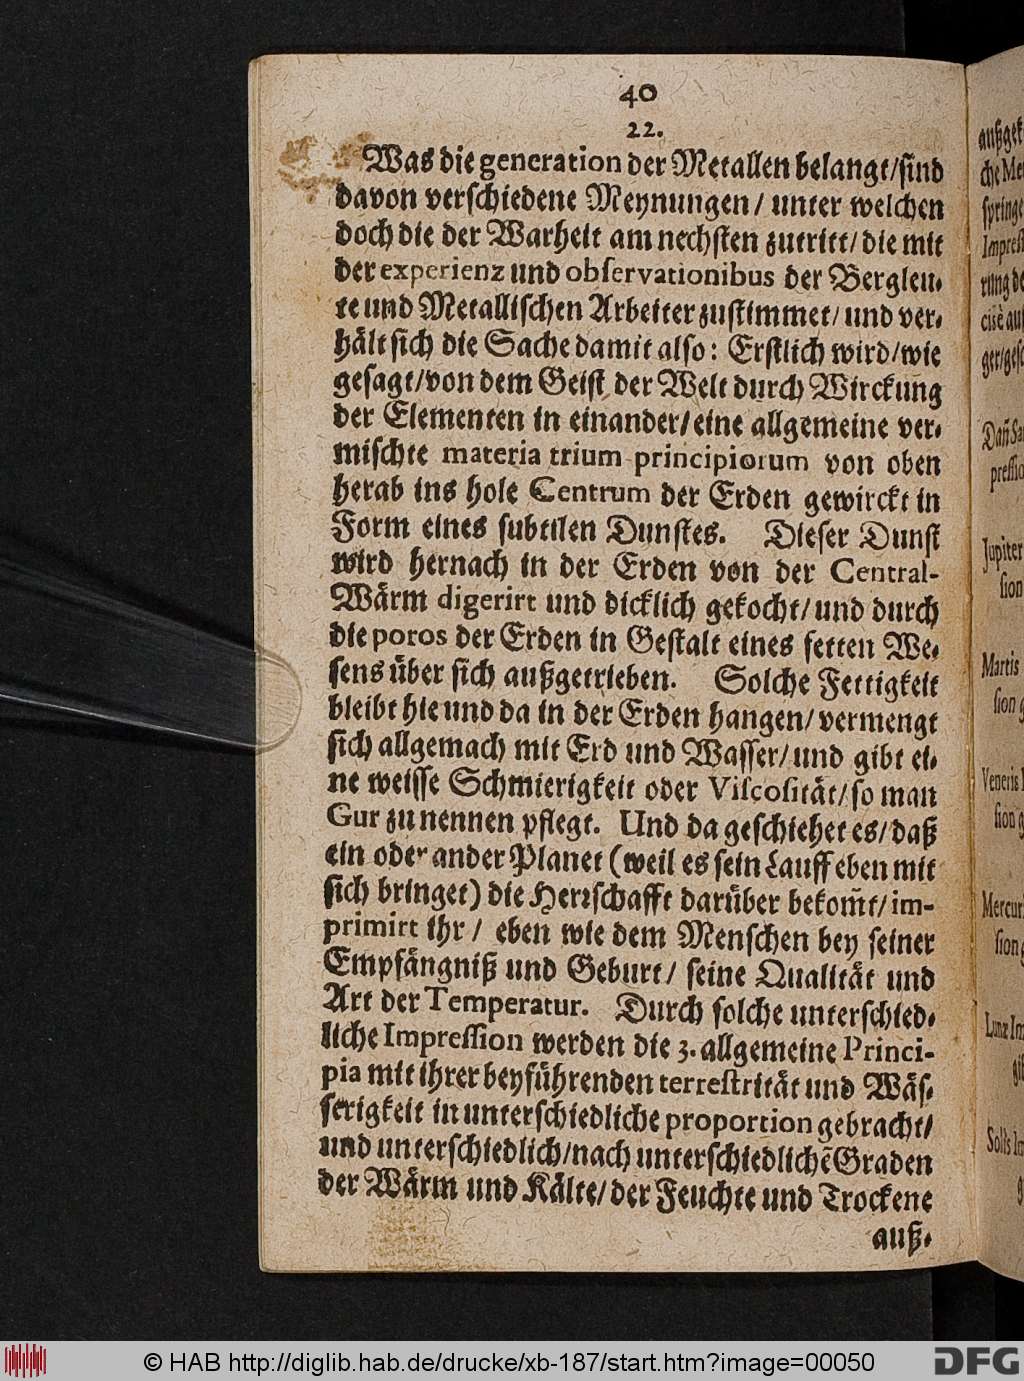 40
22.
Was die generation der Metallen belangt/sind
davon verschiedene Meynungen/ unter welchen
doch die der Warheit am nechsten zutritt/ die mit
der experienz und observationibus der Bergleu-
te und Metallischen Arbeiter zustimmet/ und ver-
hält sich die Sache damit also: Erstlich wird/wie
gesagt/von dem Geist der Welt durch Wirckung
der Elementen in einander/eine allgemeine ver-
mischte materia trium principiorum von oben
herab ins hole Centrum der Erden gewirckt in
Form eines subtilen Dunstes. Dieser Dunst
wird hernach in der Erden von der Central-
Wärm digerirt und dicklich gekocht/und durch
die poros der Erden in Gestalt eines fetten We-
sens über sich außgetrieben. Solche Fettigkeit
bleibt hie und da in der Erden hangen/ vermengt
sich allgemach mit Erd und Wasser/und gibt ei-
ne weisse Schmierigkeit oder Viscosität/so man
Gur zu nennen pflegt. Und da geschiehet es/daß
ein oder ander Planet (weil es sein Lauff eben mit
sich bringet) die Herrschafft darüber bekom̃t/im-
primirt ihr/ eben wie dem Menschen bey seiner
Empfängniß und Geburt/ seine Qualität und
Art der Temperatur. Durch solche unterschied-
liche Impression werden die 3. allgemeine Princi-
pia mit ihrer beyführenden terrestrität und Wäs-
serigkeit in unterschiedliche proportion gebracht/
und unterschiedlich/nach unterschiedlichẽ Graden
der Wärm und Kälte/der Feuchte und Trockene
auß-
außgek
che Me
springe
Impress
rung de
cisè auß
ger/gesc
Dañ Sa
pressio
Jupiter
sion
Martis
sion g
Veneris I
sion g
Mercur
sion g
Lunæ Im
gi
Solis Im
g
© HAB http://diglib.hab.de/drucke/xb-187/start.htm?image=00050
DFG